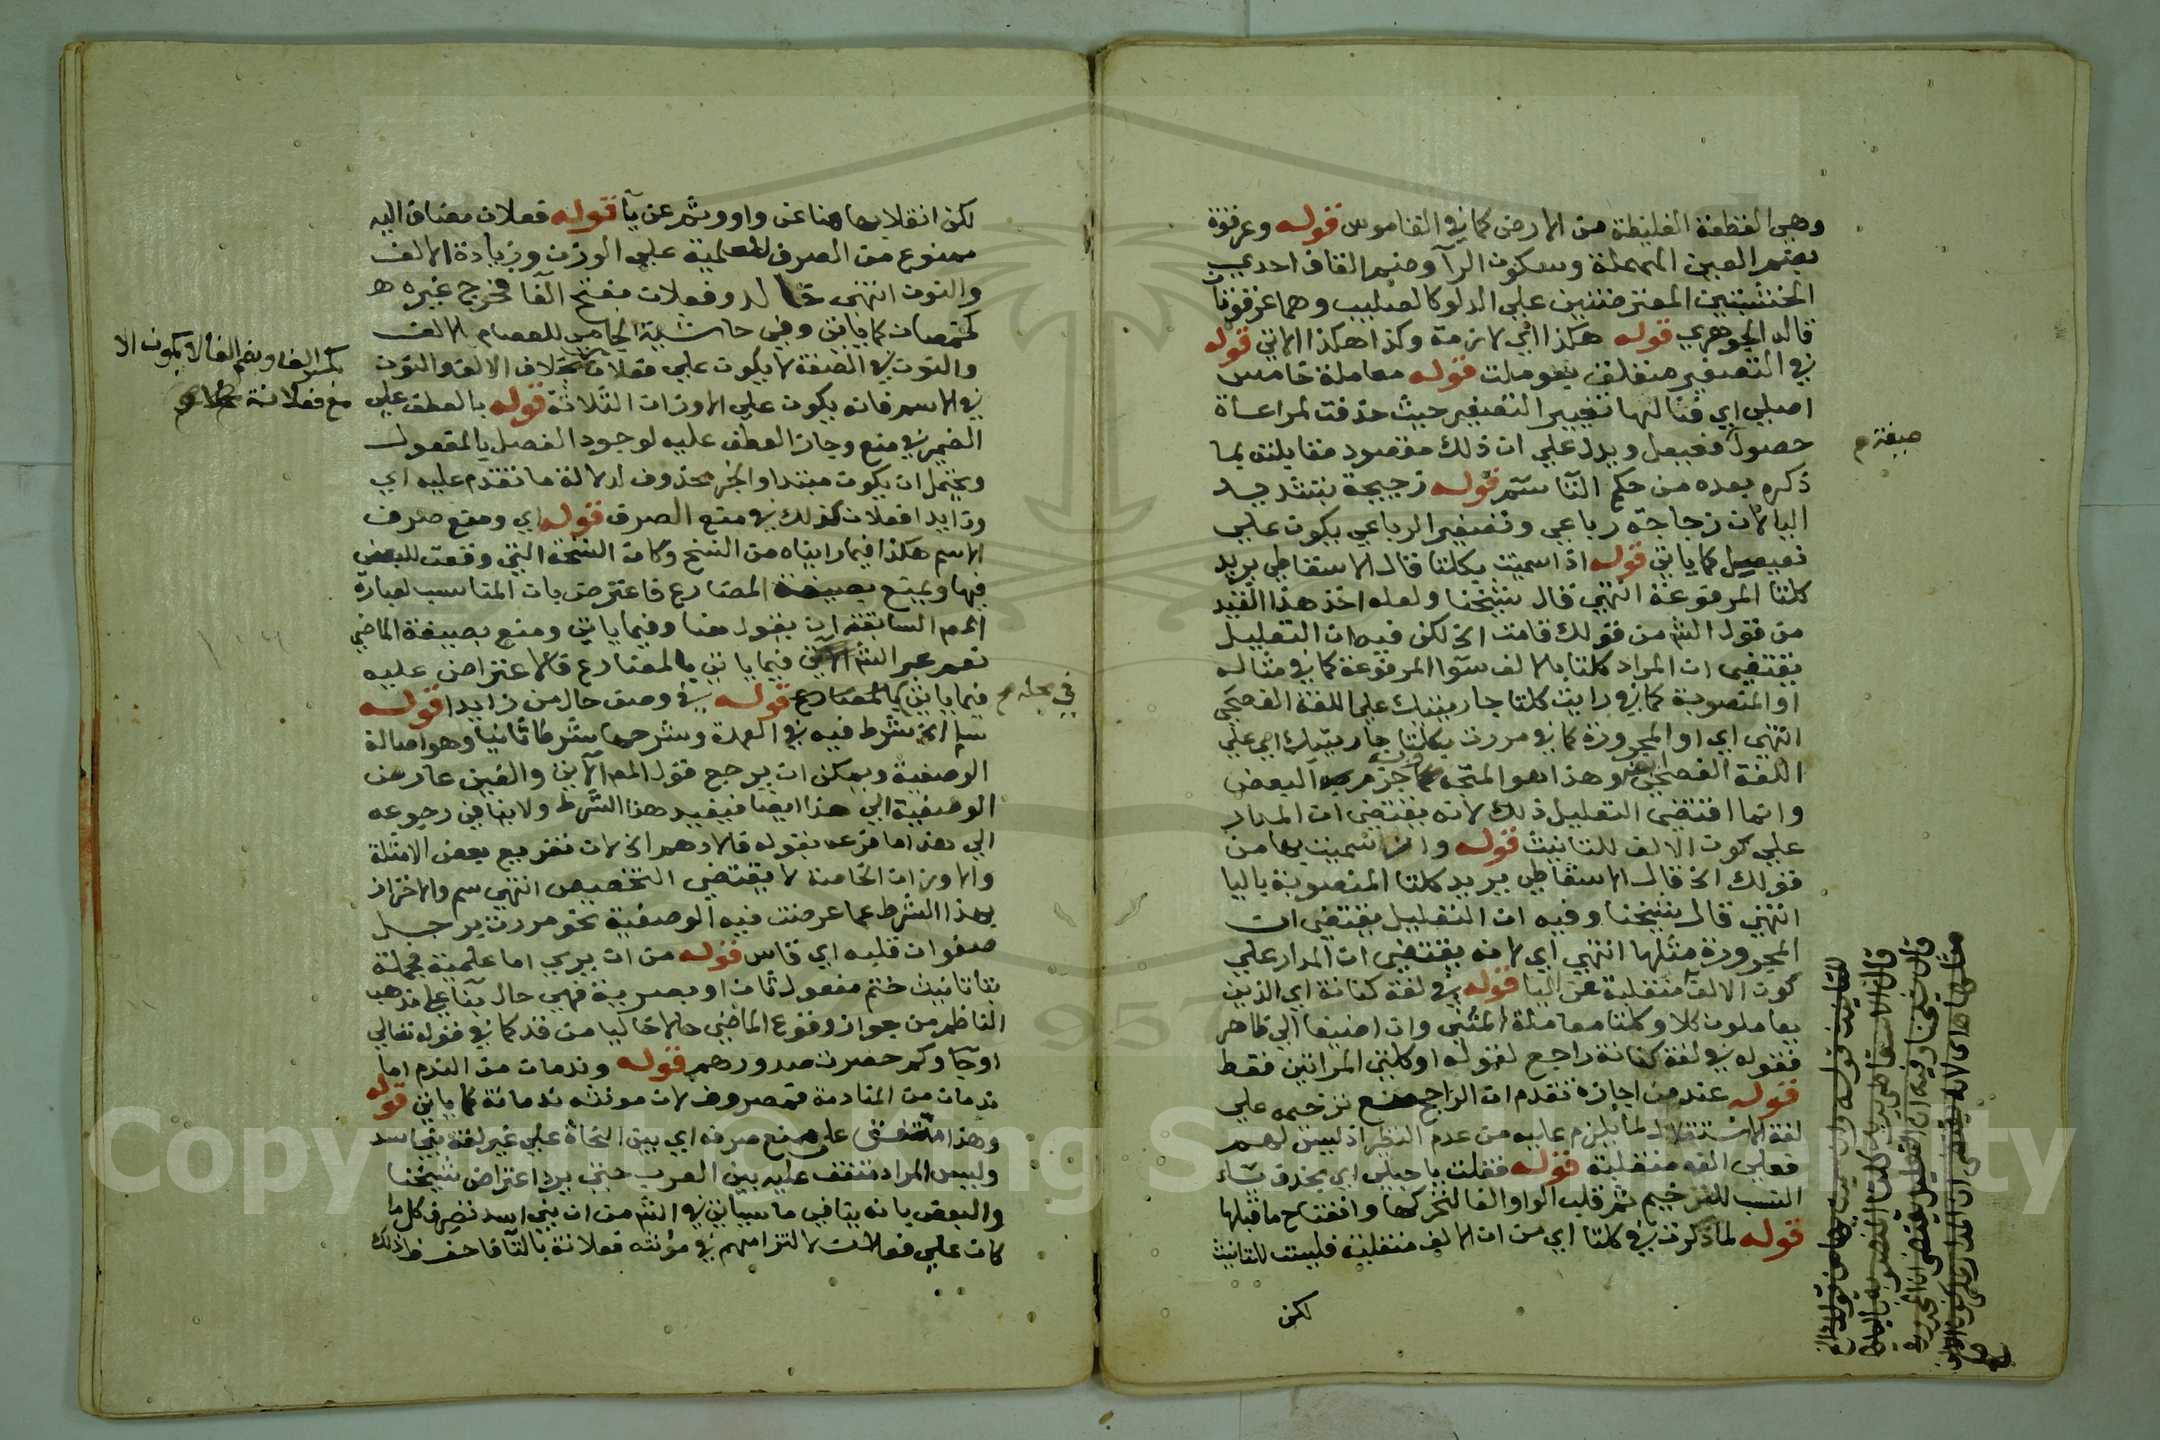 وهي القطعة الغليظة من الارض كما في القاموس قوله وعرقوة
بضم العين المهملة وسكون الرآ وضم القاف احدي
الخشبتين المعترضتين علي الدلو كالصليب وهما عرقوتان
قاله الجوهري قوله هكذا الي لازمة وكذا هكذا الاتي قوله
في التصغير متعلق بعوملت قوله معاملة خامس
اصلي اي فنالها تغيير التصغير حيث حذفت لمراعاة
حصول فعيعل ويدل علي ان ذلك مقصود مقابلته بما
صيغة م
ذكره بعده من حكم التا سم قوله زجيجة بتشديد
اليا لان زجاجة رباعي وتصغير الرباعي يكون علي
فعيعل كما ياتي قوله اذا سميت بكلتا قال الاسقاطي يريد
كلتا المرفوعة انتهي قال شيخنا ولعله اخذ هذا القيد
من قول الش من قولك قامت الخ لكن فيه ان التعليل
يقتضي ان المراد كلتا بالالف سوا المرفوعة كما في مثاله
او المنصوبة كما في رايت كلتا جاريتيك علي اللغة الفصحي
انتهي اي او المجرورة كما في مررت بكلتا جاريتيك اي علي
اللغة الفصحي وهذا هو المتجه جزم به البعض
وانما اقتضي التعليل ذلك لانه يقتضي ان المدار
علي كون الالف للتانيث قوله وان سميت بها من
قولك الخ قال الاسقاطي يريد كلتا المنصوبة باليا
انتهي قال شيخنا وفيه ان التعليل يقتضي ان
المجرورة مثلها انتهي اي لانه يقتضي ان المدار علي
كون الالف منقلبة عن اليا قوله في لغة كنانة اي الذين
يعاملون كلا وكلتا معاملة المثني وان اضيفا الي ظاهر
فقوله في لغة كنانة راجع لقوله او كلتي المراتين فقط
قوله عند من اجازه تقدم ان الراجح منع ترخيمه علي
لغة الاستقلال لما يلزم عليه من عدم النظير اذ ليس لهم
فعلي الفه منقلبة قوله فقلت يا حبلي اي بحذف يآء
النسب للترخيم ثم قلب الواو الفا لتحركها وانفتاح ما قبلها
قوله لما ذكرت في كلتا اي من ان الالف منقلبة فليست للتانيث
لكن
للتانيث قوله وان سميت بها من قولك الخ
قال الاسقاطي يريد كلتا المنصوبة باليا
قال شيخنا وفيه ان التعليل يقتضي ان المجرورة
مثلها اي لانه يقتضي ان المدار علي كون الالف
لكن انقلابها هنا عن واو وثم عن يآ قوله فعلان مضاف اليه
ممنوع من الصرف للعلمية علي الوزن وزيادة الالف
والنون انتهي خالد وفعلان بفتح الفآ فخرج غيره
كخمصان كما ياتي وفي حاشية الجامي للعصام الالف
والنون في الصفة لا يكون علي فعلان بخلاف الالف والنون
بكسر الفا وبضم الفا لا يكون الا
مع فعلانة
في الاسم فانه يكون علي الاوزان الثلاثة قوله بالعطف علي
الضمير في منع وجاز العطف عليه لوجود الفصل بالمفعول
ويحتمل ان يكون مبتدا والخبر محذوف لدلالة ما تقدم عليه اي
وزايدا فعلان كذلك في منع الصرف قوله اي ومنع صرف
الاسم هكذا فيما رايناه من النسخ وكان النسخة التي وقعت للبعض
فيها ويمنع بصيغة المضارع فاعترض بان المناسب لعبارة
المص السابقة ان يقول هنا وفيما ياتي ومنع بصيغة الماضي
نعم عبر الش فيما ياتي بالمضارع فالاعتراض عليه
فيما ياتي بالمضارع قوله في وصف حال من زايدا قوله
في محله م
سلم الخ شرط فيه في العمدة وشرحها شرطا ثانيا وهو اصالة
الوصفية ويمكن ان يرجع قول المص الاتي والغين عارض
الوصفية الي هذا ايضا فيفيد هذا الشرط ولا ينافي رجوعه
الي هذا ما فرعه بقوله فالادهم الخ لان تفريع بعض الامثلة
والاوزان الخاصة لا يقتضي التخصيص انتهي سم والاحتراز
بهذا الشرط عما عرضت فيه الوصفية نحو مررت برجل
صفوان قلبه اي قاس قوله من ان يري اما علمية فجملة
بتا تانيث ختم مفعول ثان او بصرية فهي حال بنا علي مذهب
الناظم من جواز وقوع الماضي حالا خاليا من قد كما في قوله تعالي
او جآوكم حصرت صدورهم قوله وندمان من الندم اما
ندمان من المنادمة فمصروف لان مونثه ندمانة كما ياتي قوله
وهذا متفق علي منع صرفه اي بين النحاة علي غير لغة بني اسد
وليس المراد متفق عليه بين العرب حتي يرد اعتراض شيخنا
والبعض بانه ينافي ما سياتي في الش من ان بني اسد تصرف كل ما
كان علي فعلان لالتزامهم في مؤنثه فعلانة بالتآ فاحفظ ذلك